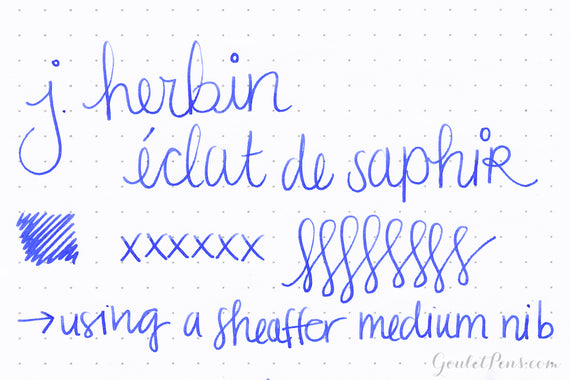 j herbin
éclat de saphir
xxxxxx
→ using a sheaffer medium nib
GouletPens.com